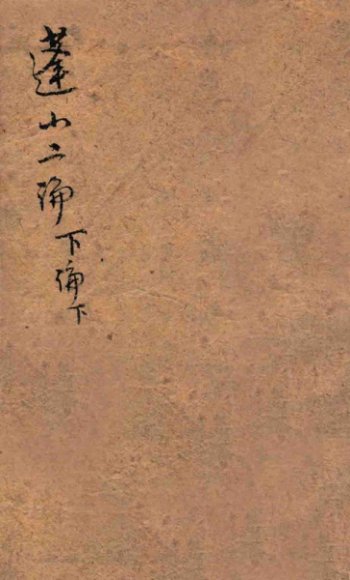 蓬小二編下編下